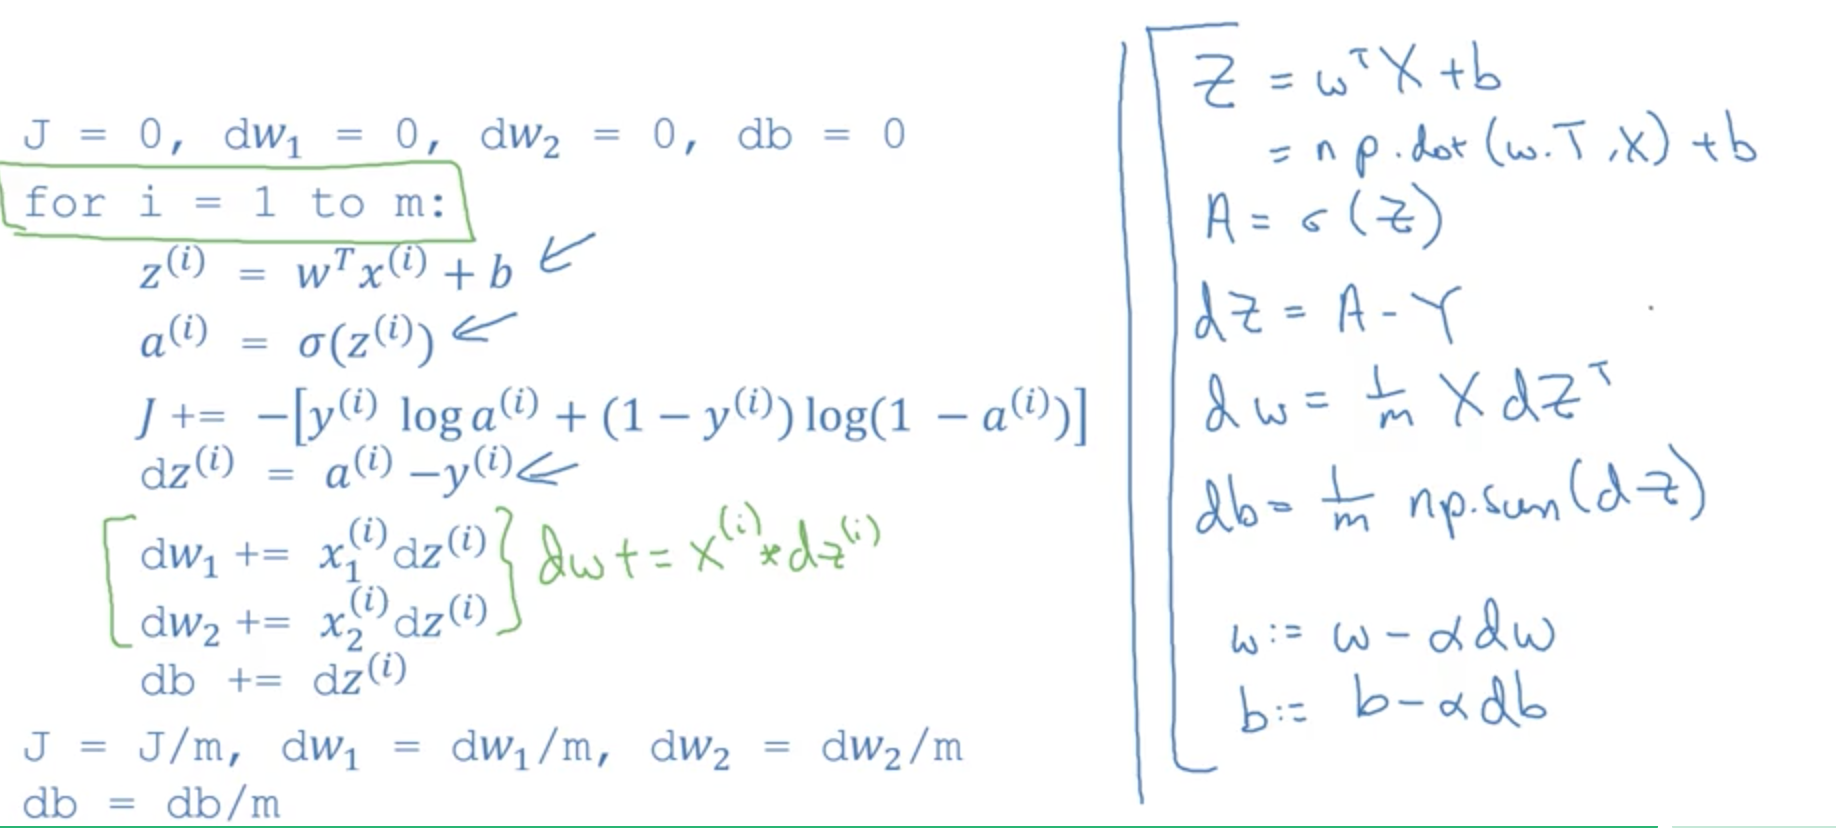 J = 0, dw₁ = 0, dw₂ = 0, db = 0
for i = 1 to m:
z⁽ⁱ⁾ = wᵀx⁽ⁱ⁾ + b
a⁽ⁱ⁾ = σ(z⁽ⁱ⁾)
J += −[y⁽ⁱ⁾ log a⁽ⁱ⁾ + (1 − y⁽ⁱ⁾) log(1 − a⁽ⁱ⁾)]
dz⁽ⁱ⁾ = a⁽ⁱ⁾ −y⁽ⁱ⁾
dw₁ += x₁⁽ⁱ⁾dz⁽ⁱ⁾
dw₂ += x₂⁽ⁱ⁾dz⁽ⁱ⁾
dw += x⁽ⁱ⁾ * dz⁽ⁱ⁾
db += dz⁽ⁱ⁾
J = J/m, dw₁ = dw₁/m, dw₂ = dw₂/m
db = db/m
Z = wᵀX + b
= np.dot(w.T, X) + b
A = σ(Z)
dZ = A - Y
dw = 1/m X dZᵀ
db = 1/m np.sum(dZ)
w := w - αdw
b := b - αdb